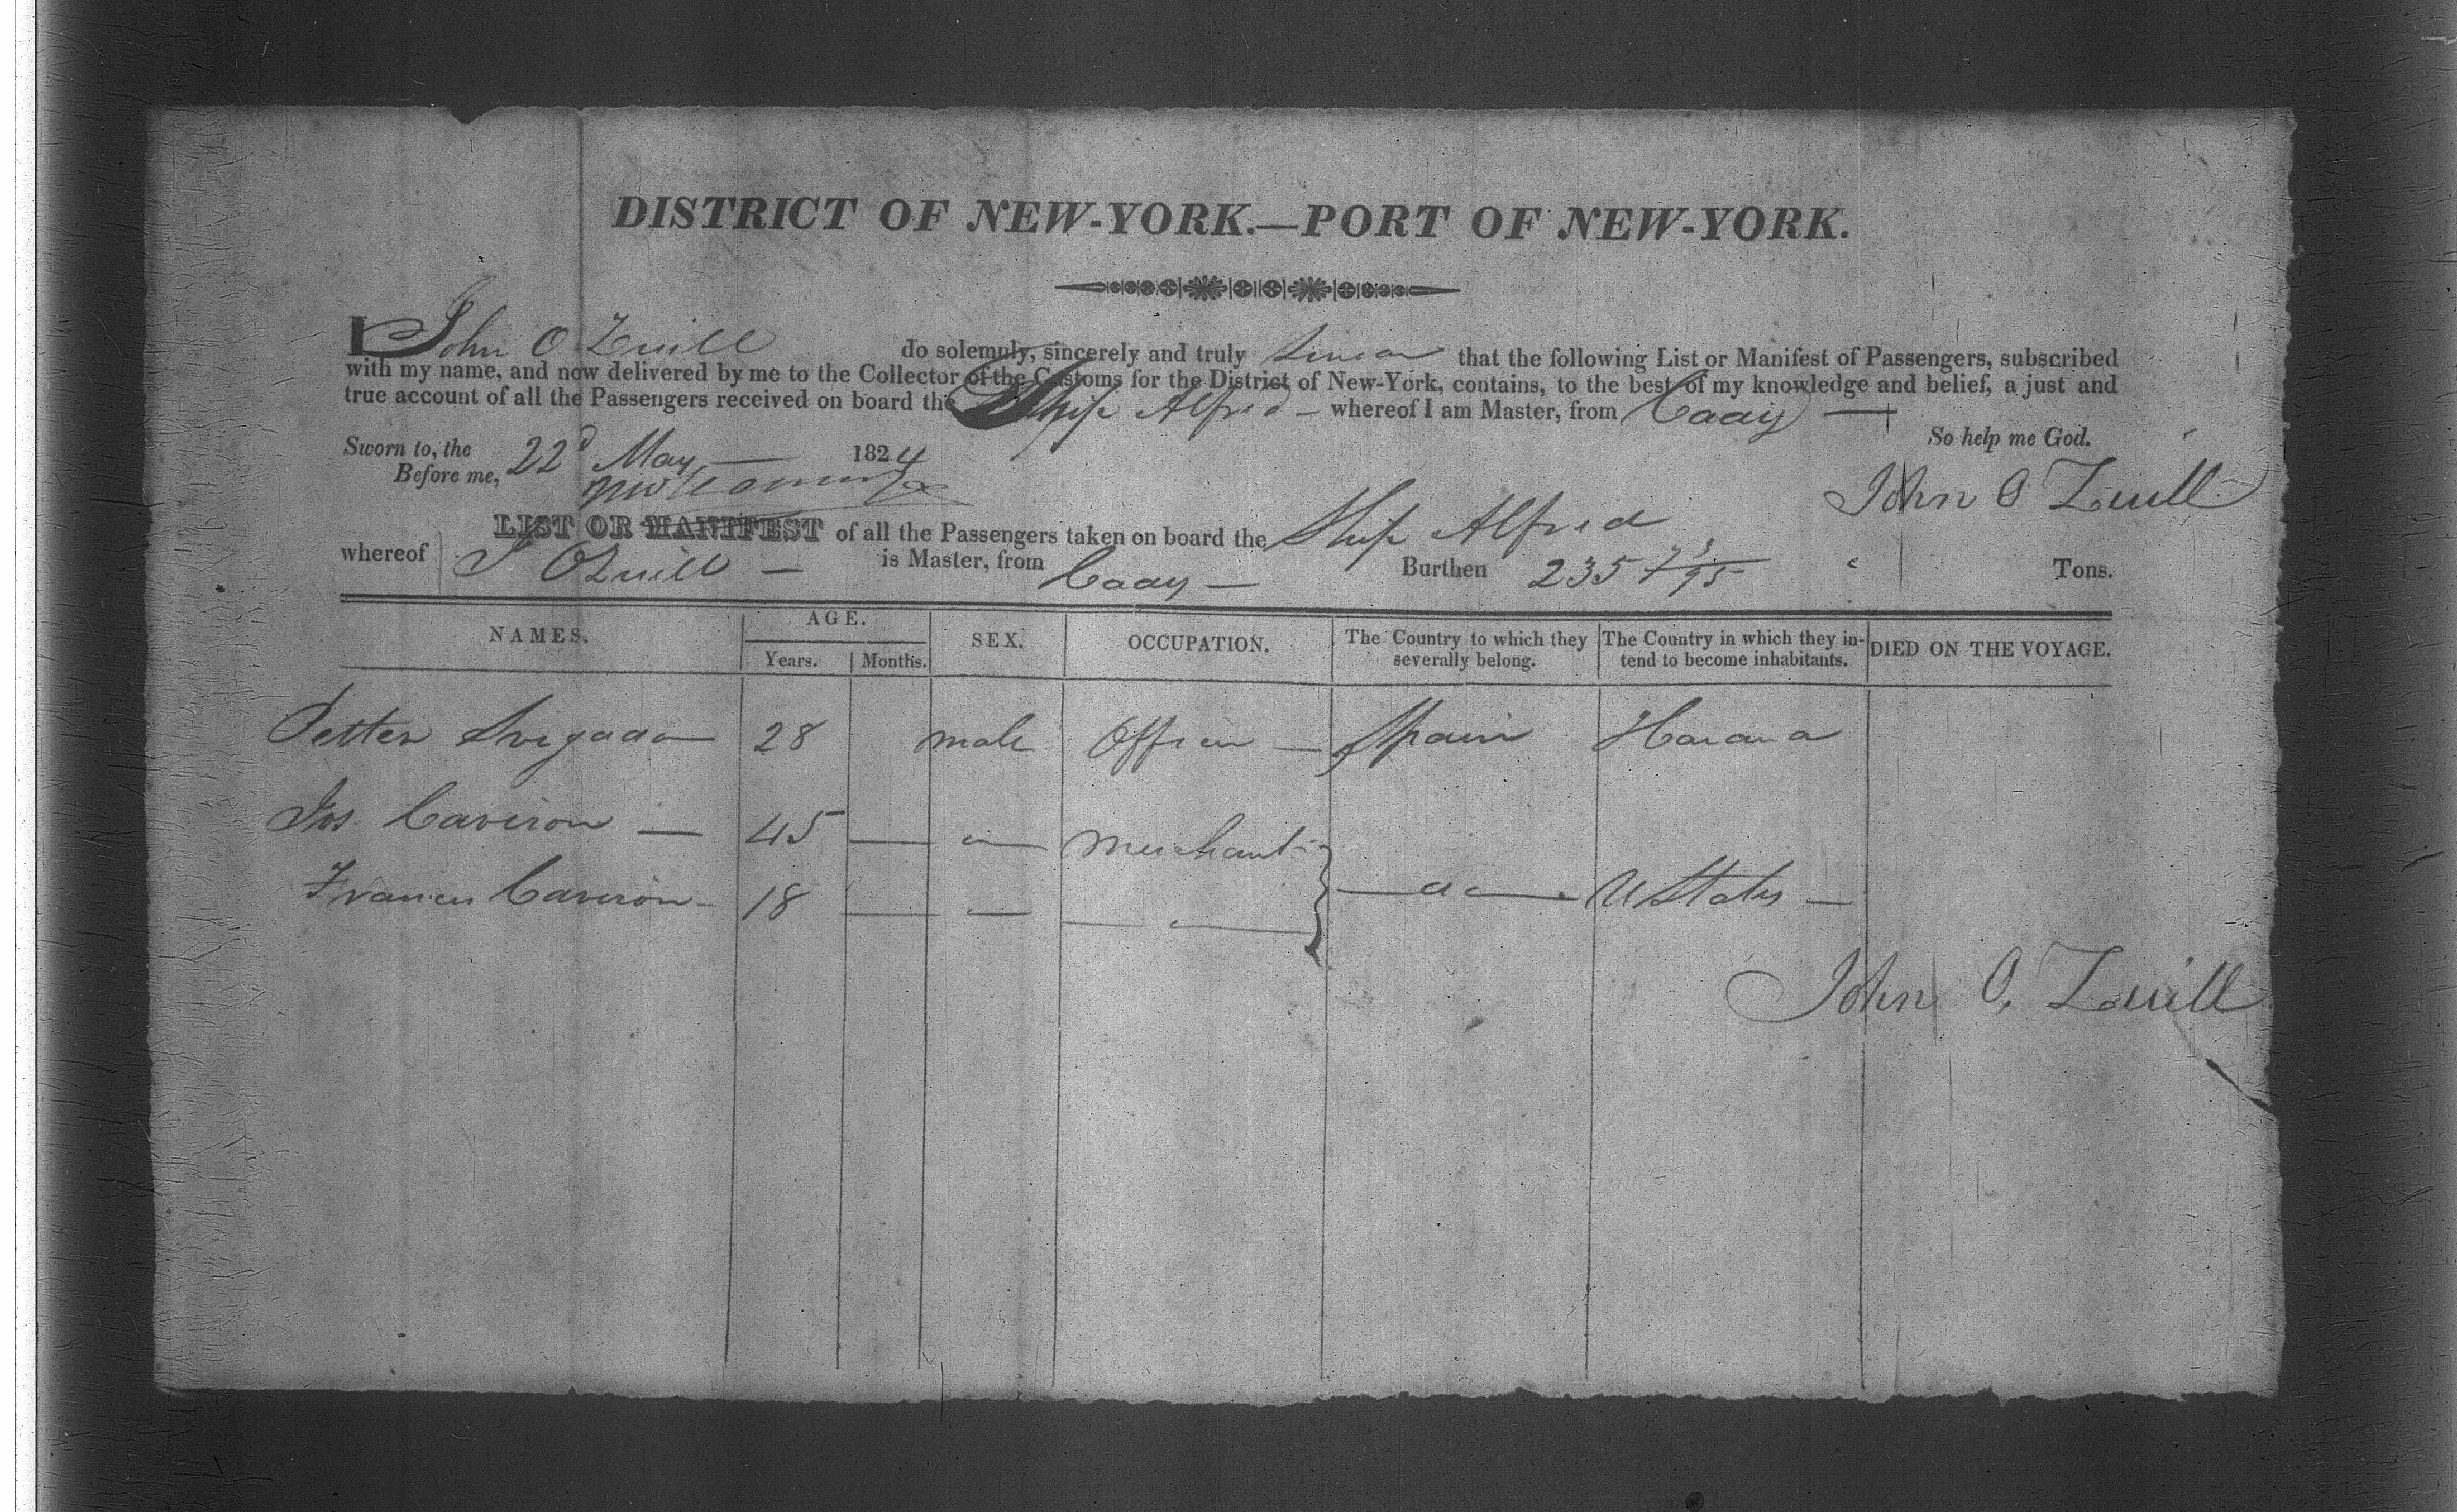 DISTRICT OF NEW-YORK.—PORT OF NEW-YORK.
I John O Zuill do solemnly, sincerely and truly swear that the following List or Manifest of Passengers, subscribed
with my name, and now delivered by me to the Collector of the Customs for the District of New-York, contains, to the best of my knowledge and belief, a just and
true account of all the Passengers received on board the Ship Alfred — whereof I am Master, from
So help me God.
Sworn to, the 22d May — 1824
Before me,
John O Zuill
LIST OR MANIFEST of all the Passengers taken on board the Ship Alfred
whereof J O Zuill — is Master, from Burthen 235 73/95 Tons.
NAMES. AGE. SEX. OCCUPATION. The Country to which they severally belong. The Country in which they intend to become inhabitants. DIED ON THE VOYAGE.
Years. Months.
Petter 28 male Officer — Spain Havana
Jos. Caviron — 45 — Merchant
Frances Caviron — 18 — U States —
John O, Zuill